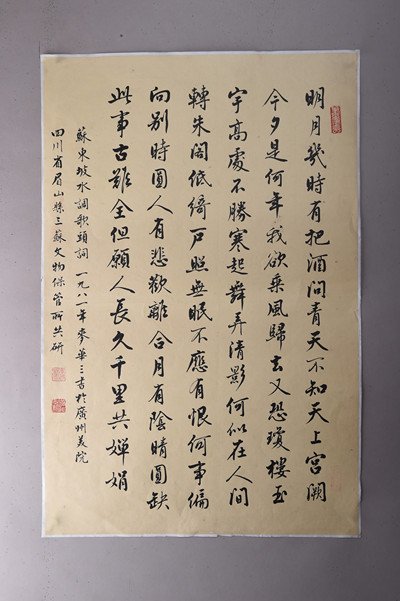 明月幾時有把酒問青天不知天上宮闕
今夕是何年我欲乘風歸去又恐瓊樓玉
宇高處不勝寒起舞弄清影何似在人間
轉朱閣低綺戶照無眠不應有恨何事偏
向別時圓人有悲歡離合月有陰晴圓缺
此事古難全但願人長久千里共嬋娟
蘇東坡水調歌頭詞 一九八一年麥華三書於廣州美院
四川省眉山縣三蘇文物保管所共研